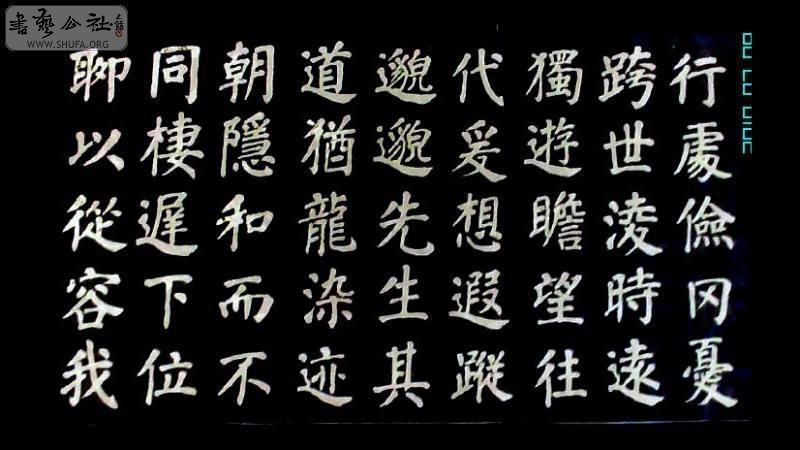 書藝公社
WWW.SHUFA.ORG
行處儉冈憂
跨世淩時遠
獨遊瞻望往
代爰想遐蹤
邈邈先生其
道猶龍染迹
朝隱和而不
同棲遲下位
聊以從容我